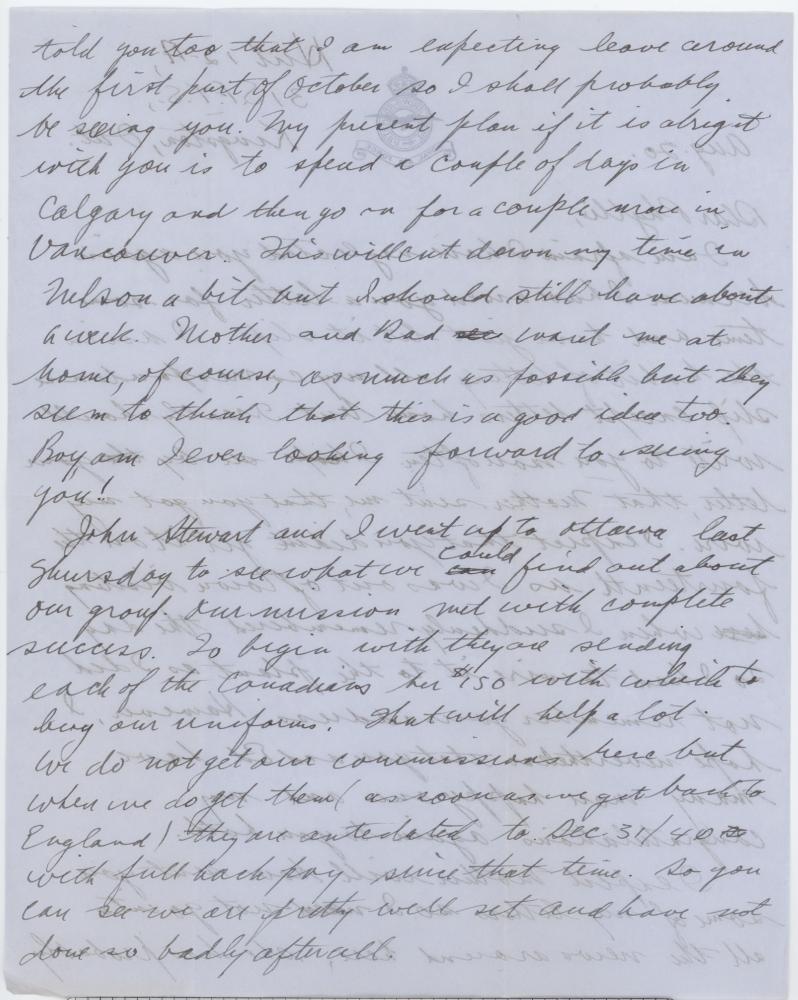 told you too that I am expecting leave around
the first part of October so I shall probably
be seeing you. My present plan if it is alright
with you is to spend a couple of days in
Calgary and then go on for a couple more in
Vancouver. This will cut down my time in
Nelson a bit but I should still have about
a week. Mother and Dad want me at
home, of course, as much as possible but they
seem to think that this is a good idea too.
Boy am I ever looking forward to seeing
you!
John Stewart and I went up to Ottawa last
Thursday to see what we can could find out about
our group. Our mission met with complete
success. To begin with they are sending
each of the Canadians her $150 with which to
buy our uniforms. That will help a lot.
We do not get our commissions here but
when we do get them (as soon as we get back to
England) they are antedated to Dec 31/40
with full back pay since that time. So you
can see we are pretty well set and have not
done so badly after all.